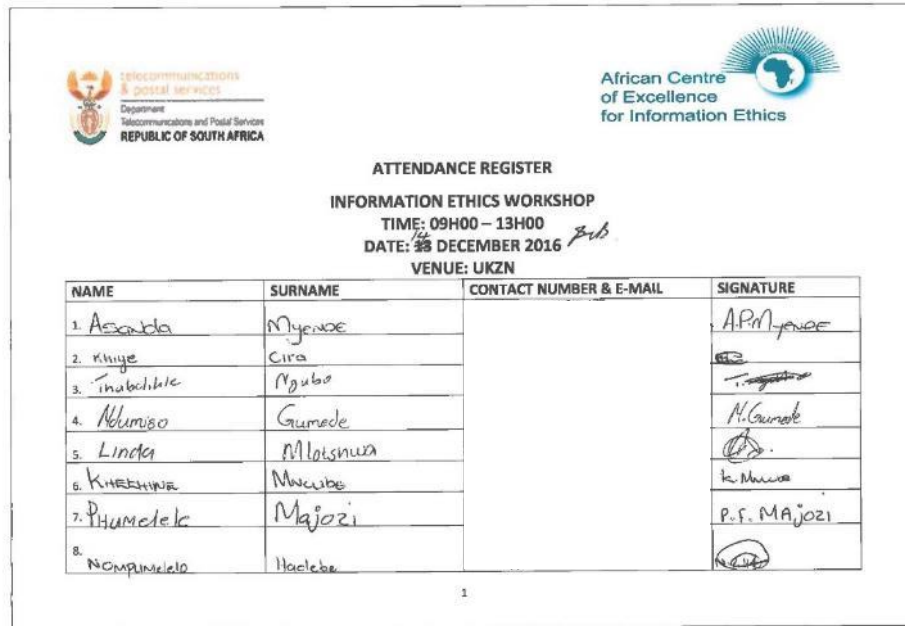 telecommunications
& postal services
Department
Telecommunications and Postal Services
REPUBLIC OF SOUTH AFRICA
African Centre
of Excellence
for Information Ethics
ATTENDANCE REGISTER
INFORMATION ETHICS WORKSHOP
TIME: 09H00 – 13H00
DATE: 14 DECEMBER 2016
VENUE: UKZN
NAME SURNAME CONTACT NUMBER & E-MAIL SIGNATURE
1. Asanda Myende A.P.Myende
2. Khiye Cira
3. Ngubo
4. Ndumiso Gumede N.Gumede
5. Linda Mlotshwa
6. Mncube
7. Phumelele Majozi P.F. MAjozi
8. Nompumelelo
1